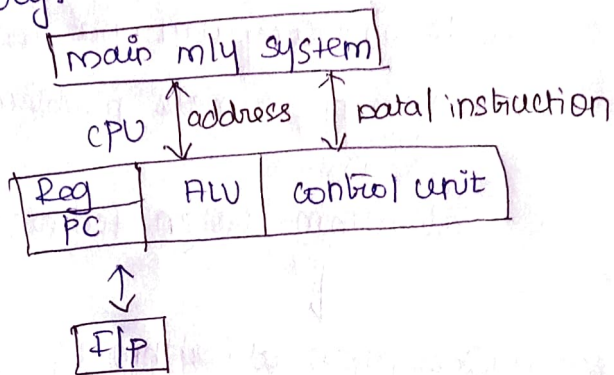 main mly system
CPU
address
Data/ instruction
Reg
ALU
control unit
PC
I/P